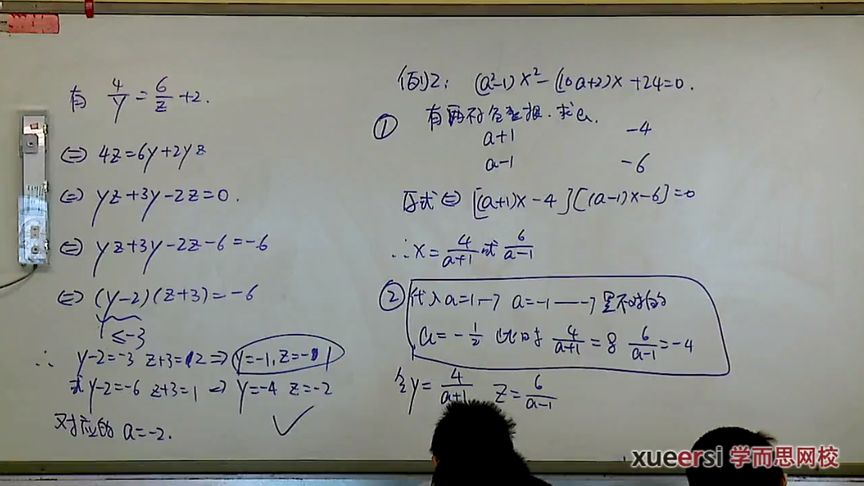 有 4/y = 6/z + 2.
⇔ 4z = 6y + 2yz
⇔ yz + 3y - 2z = 0.
⇔ yz + 3y - 2z - 6 = -6
⇔ (y-2)(z+3) = -6
≤ -3
∴ y-2=-3 z+3=2 ⇒ y=-1, z=-1
或 y-2=-6 z+3=1 ⇒ y=-4 z=-2
对应的 a=-2.
例2: (a²-1)x² - (10a+2)x + 24 = 0.
有两不 根. 求a.
①
a+1 -4
a-1 -6
原式⇔ [(a+1)x-4][(a-1)x-6]=0
∴ x = 4/(a+1) 或 6/(a-1)
② 代入 a=1, -7 a=-1 — -7 是不对的
a = -1/2 此时 4/(a+1) = 8 6/(a-1) = -4
令 y = 4/(a+1) z = 6/(a-1)
xueersi 学而思网校